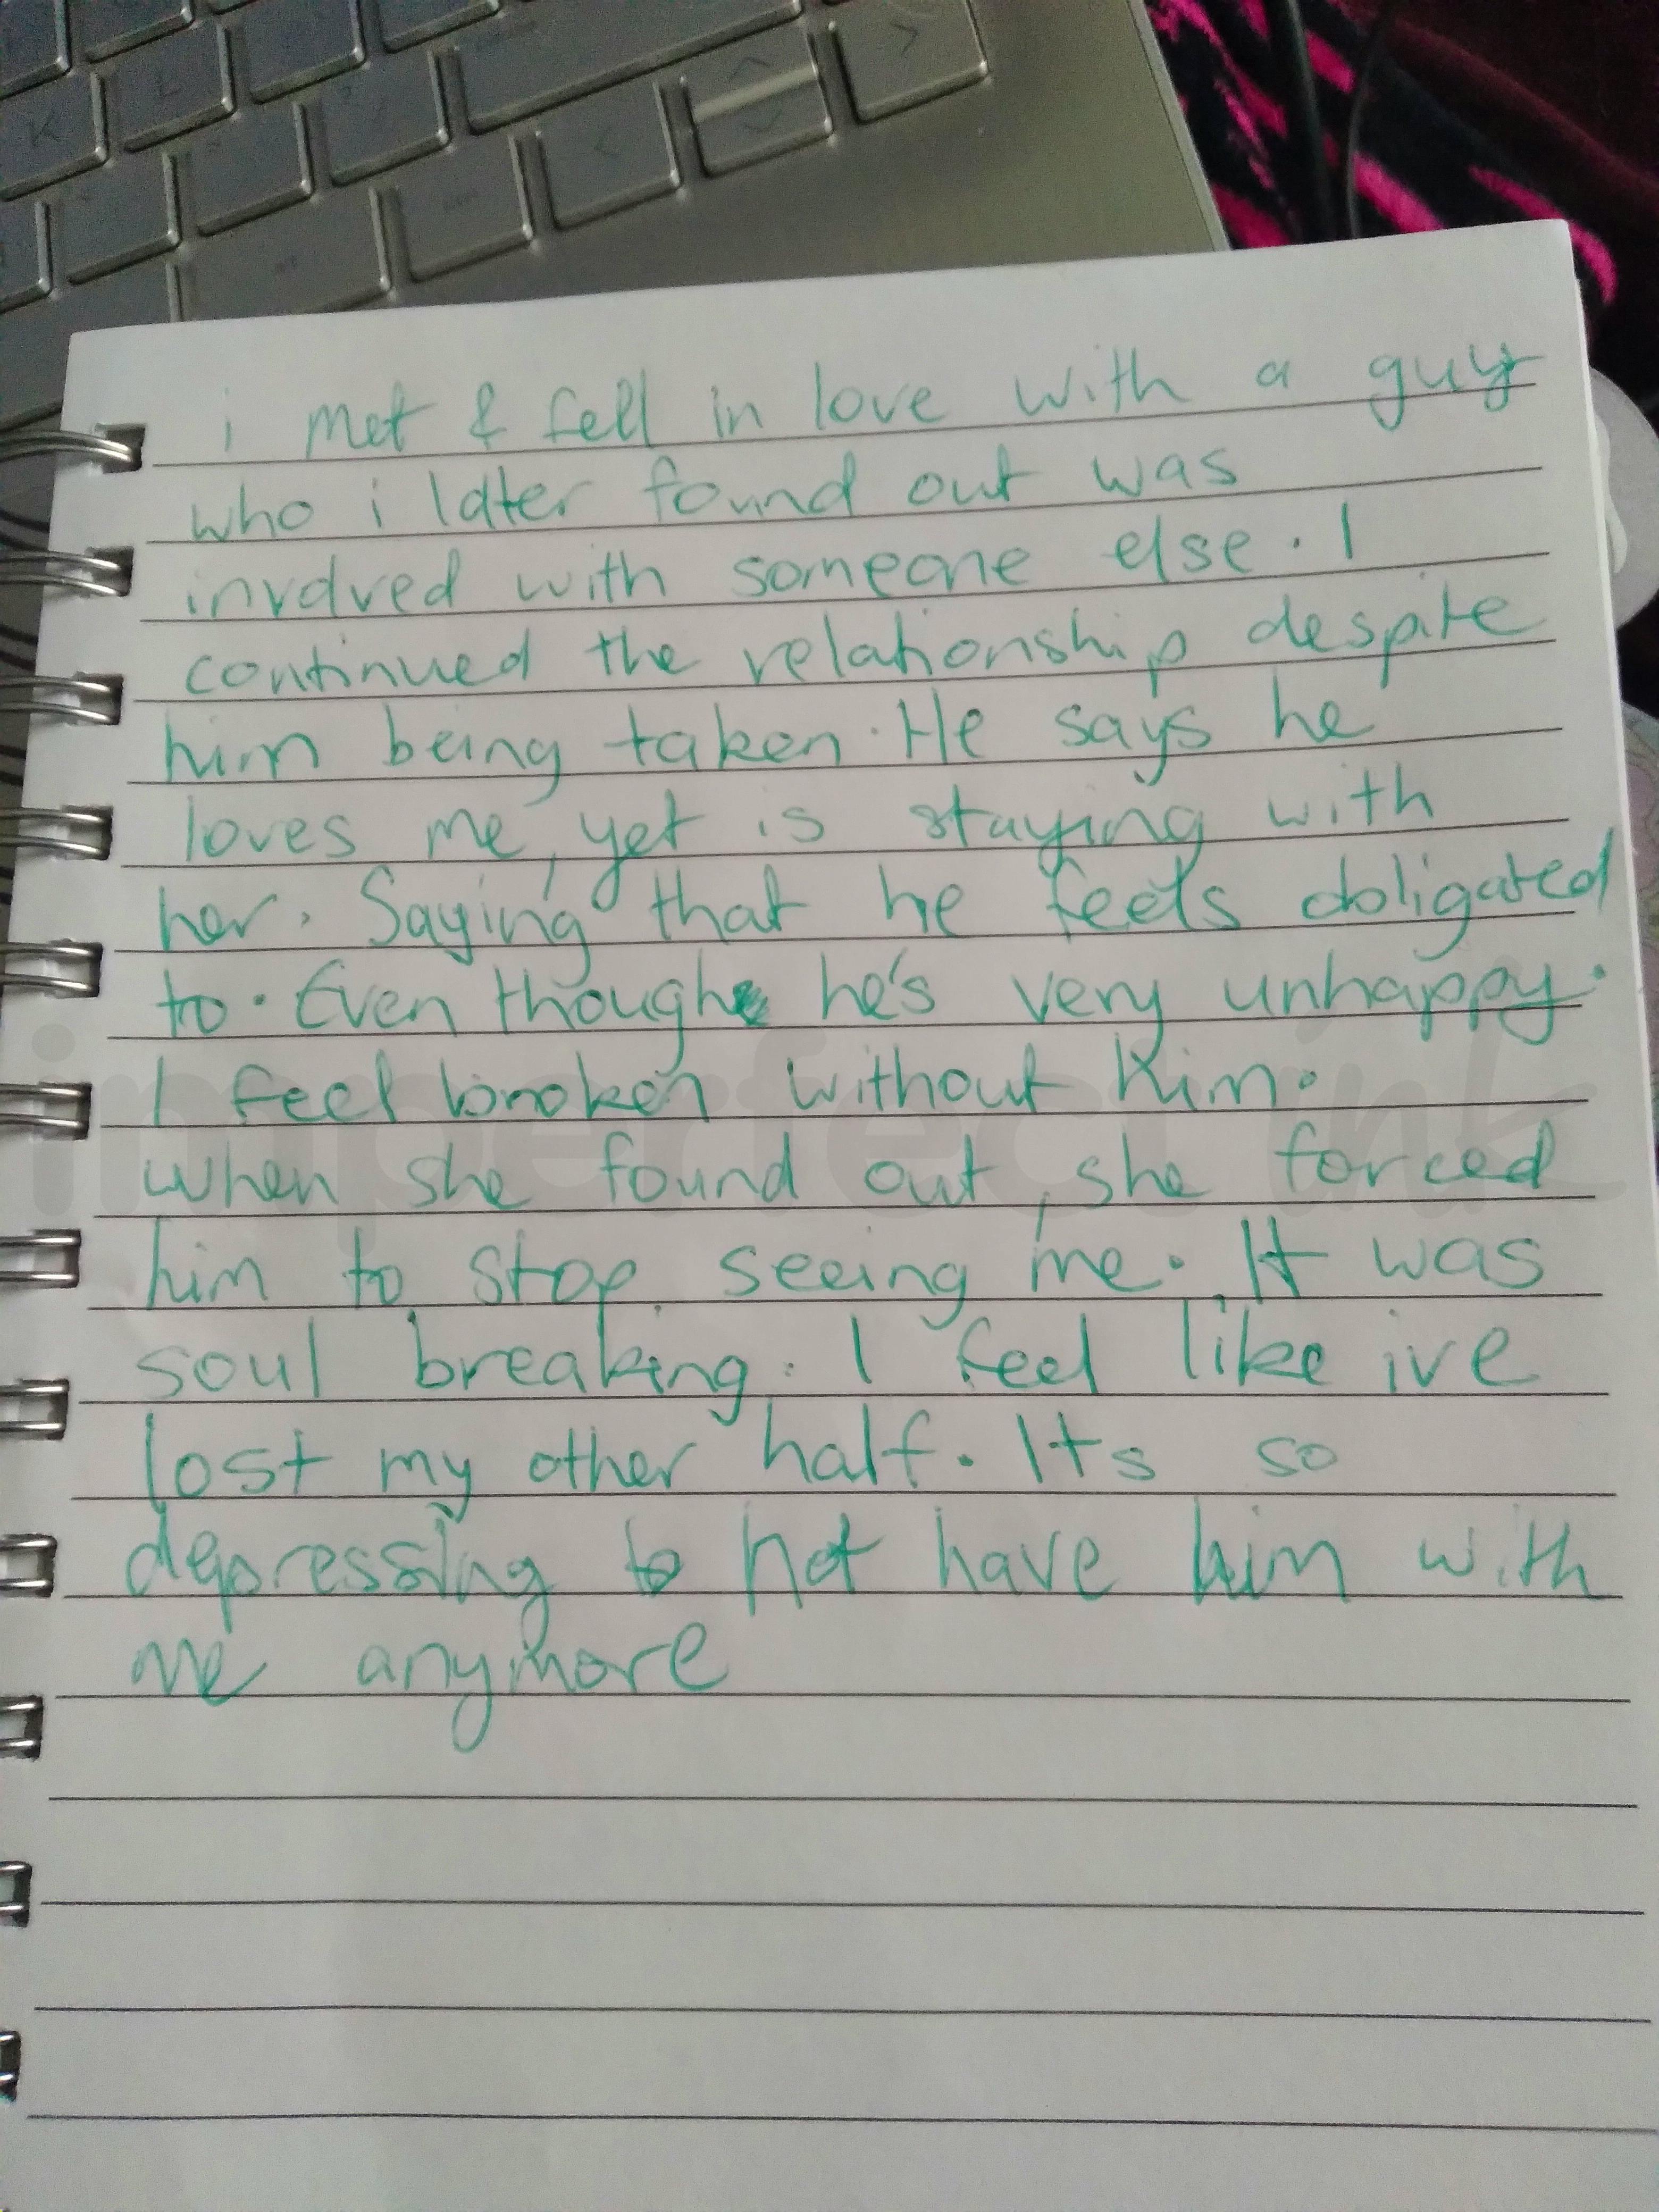 i met & fell in love with a guy
who i later found out was
involved with someone else. I
continued the relationship despite
him being taken. He says he
loves me, yet is staying with
her. Saying that he feels obligated
to. Even though he's very unhappy.
I feel broken without him.
when she found out, she forced
him to stop seeing me. It was
soul breaking. I feel like ive
lost my other half. Its so
depressing to not have him with
me anymore
imperfect ink